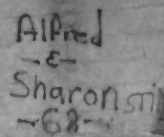 Alfred
- & -
Sharon
- 68 -